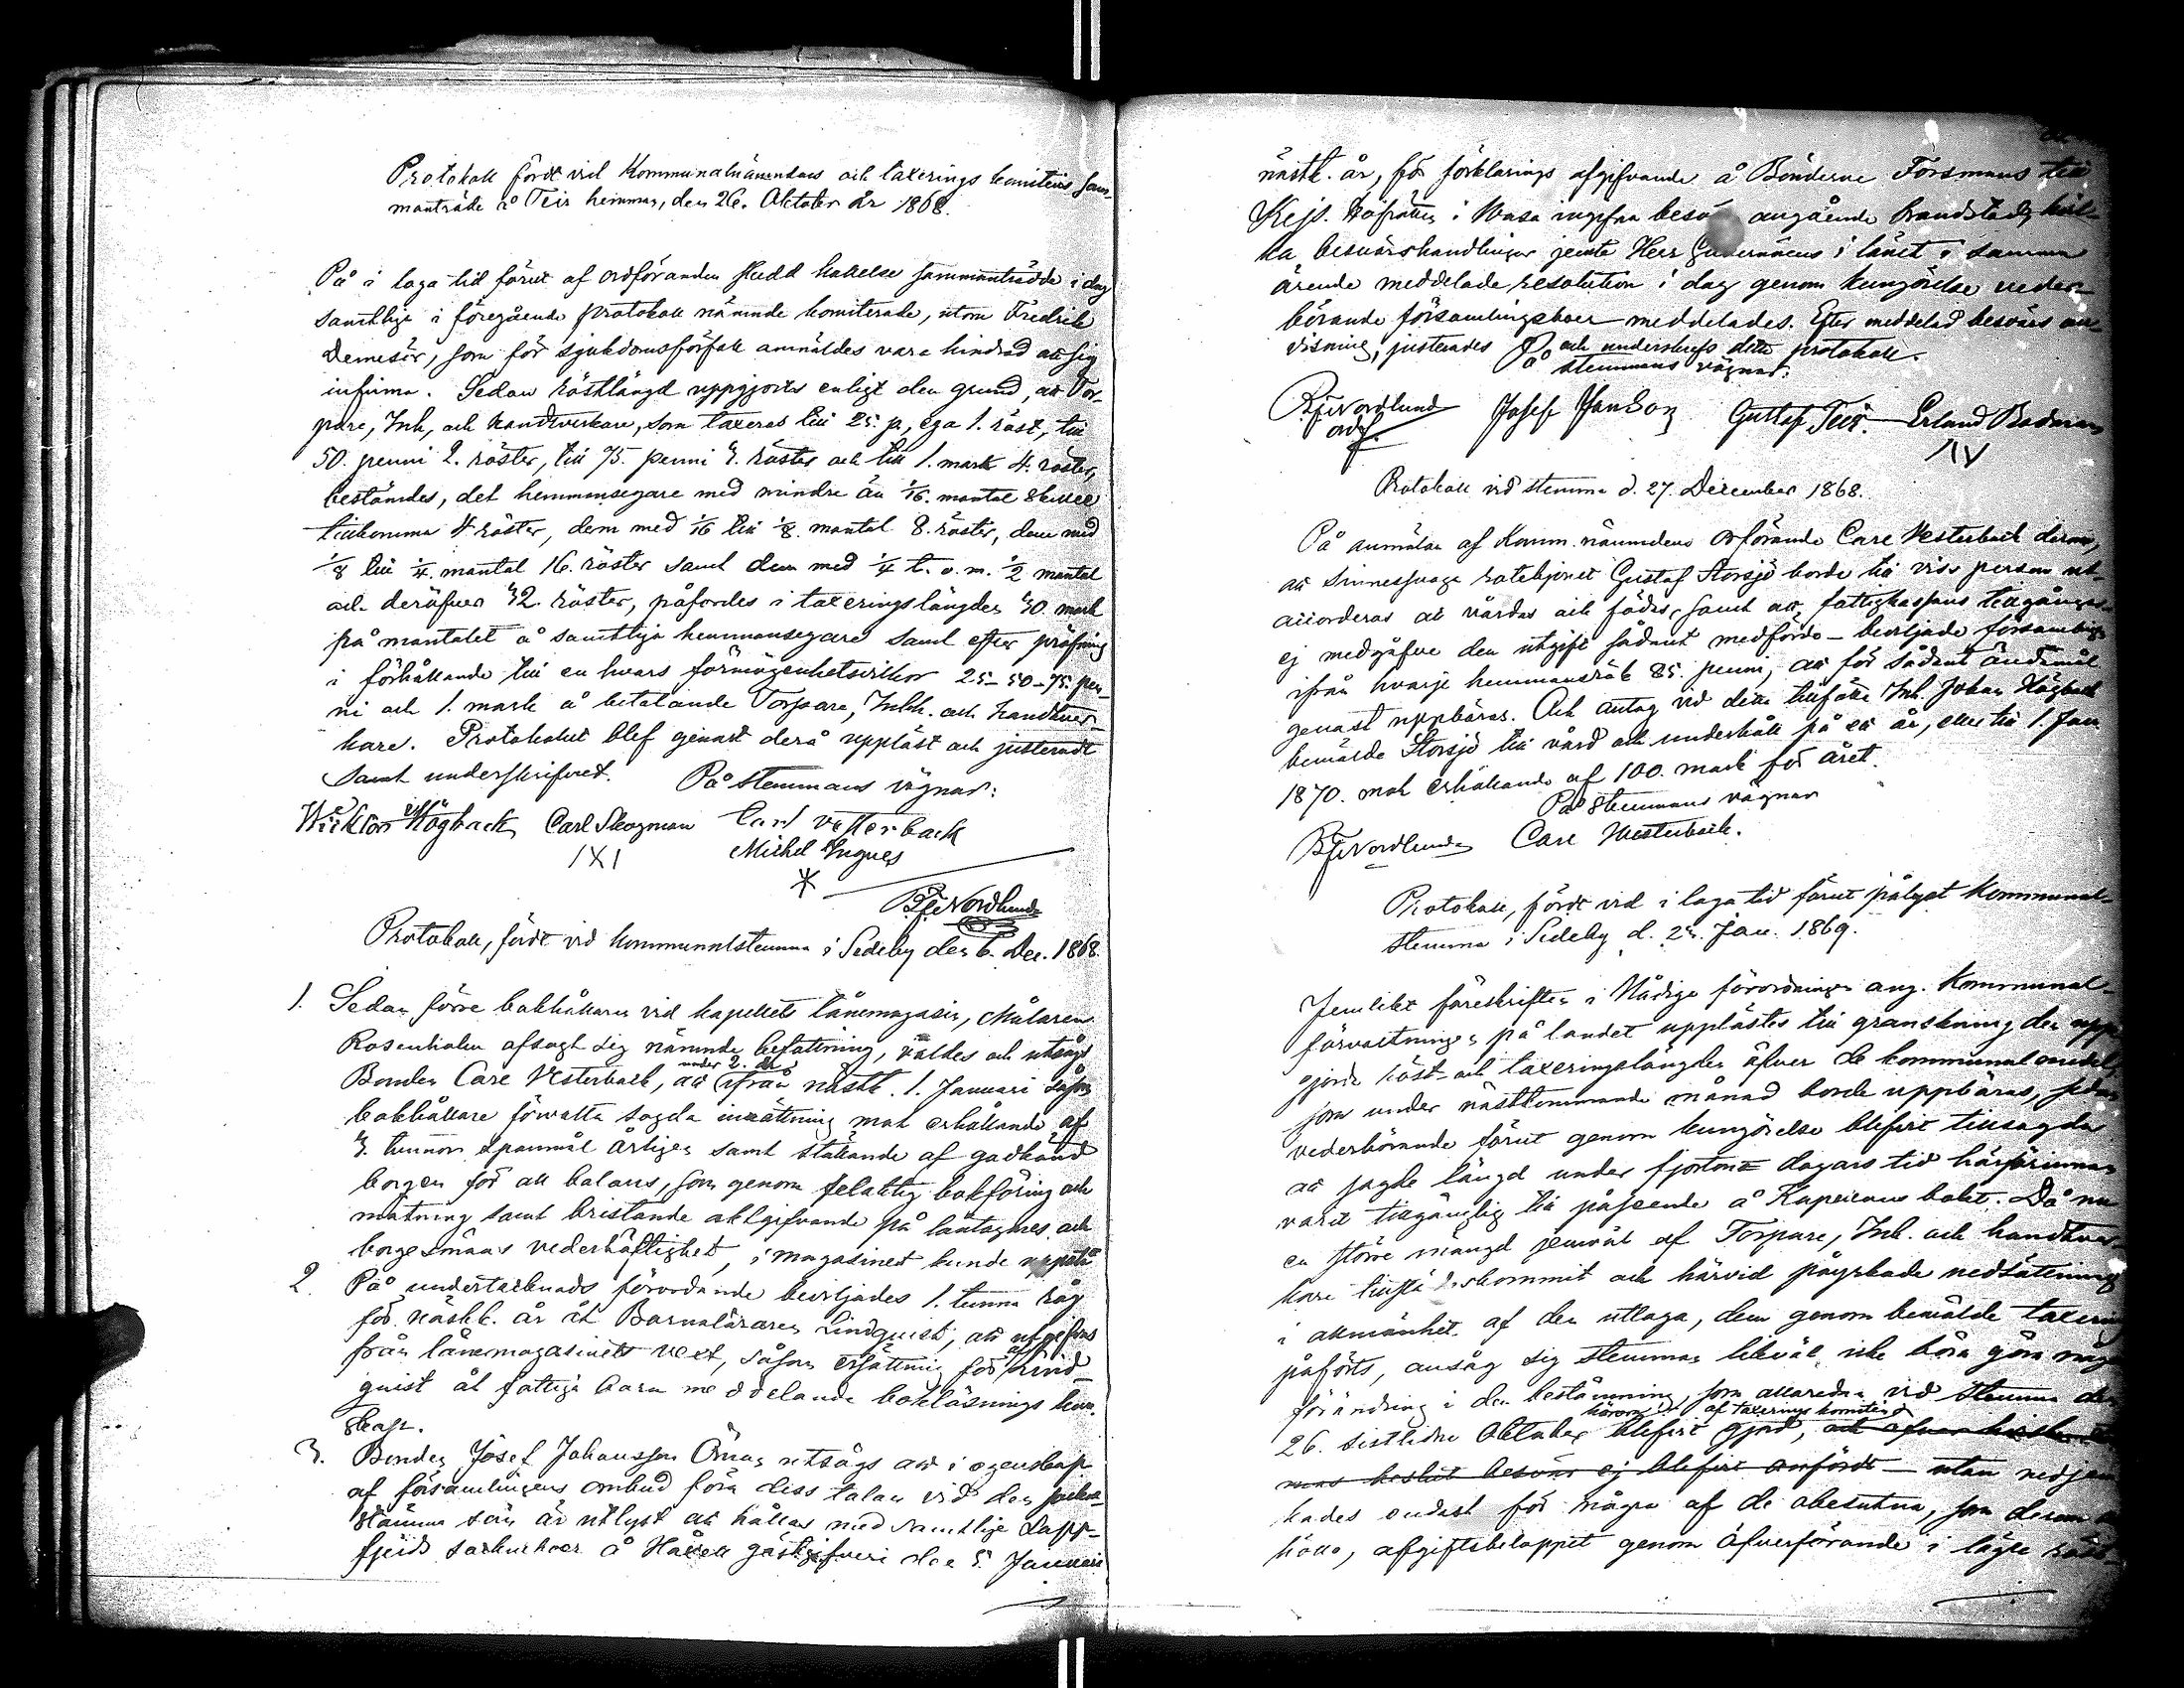 Protokoll fördt vid Kommunalnämndens och taxerings komiteens sam-
manträde å Teir hemman, den 26. Oktober år 1868.
På i laga tid förut af ordföranden skedd kallelse sammanträdde i dag
samtlige i föregående protokoll nämnde komiterade, utom Fredrik
Demesör, som för sjukdomsförfall anmäldes vara hindrad att sig
infinna. Sedan röstlängd uppgjorts enligt den grund, att Tor-
pare, Inh, och handtverkare, som taxeras till 25. p, ega 1. röst, till
50. penni 2. röster, till 75. penni 3. röster och till 1. mark 4. röster,
bestämdes, det hemmansegare med mindre än 1/16. mantal skulle
tillkomma 4 röster, dem med 1/16 till 1/8. mantal 8. röster, dem med
1/8 till 1/4. mantal 16. röster samt dem med 1/4 t. o. m. 1/2 mantal
och deröfver 32. röster, påfördes i taxeringslängden 30. mark
på mantalet å samtliga hemmansegare samt efter pröfning
i förhållande till en hvars förmögenhetsvilkor 25-50-75. pen-
ni och 1. mark å betalande Torpare, Inhh. och handtver-
kare. Protokollet blef genast derå uppläst och justeradt
samt underskrifvet. På stemmans vägnar:
Wicktor Högback Carl Skogman Carl vesterback
IXI Michel Ingves
B J Nordlund
Protokoll, fördt vid kommunalstemma i Sedeby den 6. Dec. 1868.
1. Sedan förre bokhållaren vid kapellets lånemagasin, Målaren
Rosenholm afsagt sig nämnde befattning, valdes och utsågs
under 2. år
Bonden Carl Vesterback, att ifrån nästk. 1. Januari såsom
bokhållare förvalta sagda inrättning mot erhållande af
3. tunnor spanmål årligen samt ställande af godkänd
borgen för all balans, som genom felaktig bokföring och
mätning samt bristande aktgifvande på låntagares och
borgesmäns vederhäftighet, i magasinet kunde uppstå
2. På undertecknads förordnande beviljades 1. tunna råg
för nästk. år åt Barnaläraren Lindquist, att utgifvas
från lånemagasinets vext, såsom ersättning för af Lind-
quist åt fattiga barn meddelande bokläsnings kun-
skap.
3. Bonden Josef Johansson Örnas utsågs att i egenskap
af församlingens ombud föra dess talan vid den socken-
stämma som är utlyst att hållas med samtlige Lapp-
fjerds sockneboer å Håkell gästgifveri den 5. Januari
nästk. år, för förklarings afgifvande å Bönderne Forsmans till
Kejs. Hofrätten i Wasa ingifna besvär angående brandstads
ka besvärshandlingar jemte Herr Guvernörens i länet i samma
ärende meddelade resolution i dag genom kungörelse veder-
börande församlingsboer meddelades. Efter meddelad besvärs an-
visning, justerades och underskrefs detta protokoll.
På stemmans vägnar:
B J Nordlund Josef Janson Gustaf Teir. Erland Bodman
ordf.
Protokoll vid stemma d. 27. December 1868.
På anmälan af Komm. nämndens Ordförande Carl Vesterback derom,
att sinnessvage rotehjonet Gustaf Storsjö borde till viss person ut-
ackorderas att vårdas och födas, samt att fattigkassans tillgångar
ej medgåfve den utgift sådant medförde - beviljade församlingen
ifrån hvarje hemmansrök 85. penni, att för sådant ändamål
genast uppbäras. Och antog vid detta tillfälle Inh. Johan Högback
bemälde Storsjö till vård och underhåll på ett år, eller till 1. Jan.
1870. mot erhållande af 100. mark för året.
På stemmans vägnar
B J Nordlund Carl Westerback.
Protokoll, fördt vid i laga tid förut pålyst Kommunal-
stemma i Sideby d. 24. Jan. 1869.
Jemlikt föreskriften i Nådiga förordningen ang. Kommunal-
förvaltningen på landet upplästes till granskning den upp-
gjorda röst- och taxeringslängden öfver de kommunal
som under nästkommande månad borde uppbäras, sedan
vederbörande förut genom kungörelse blifvit tillsagda
att sagde längd under fjorton dagars tid härförinnan
varit tillgänglig till påseende å Kapellans bolet. Då nu
en större mängd jemväl af Torpare, Inh. och handtver-
kare tillstädeskommit och härvid påyrkade nedsättning
i allmänhet af den utlaga, dem genom bemälde taxering
påförts, ansåg sig stemman likväl icke böra göra någon
förändring i den bestämning, som allaredan vid stemma den
härom af taxerings komitéen
26. sistlidne Oktober blifvit gjord, och
mas beslut besvär ej blifvit anfördt - utan nedjem-
kades endast för några af de obesutna, som derom
höllo, afgiftsbeloppet genom öfverförande i lägre